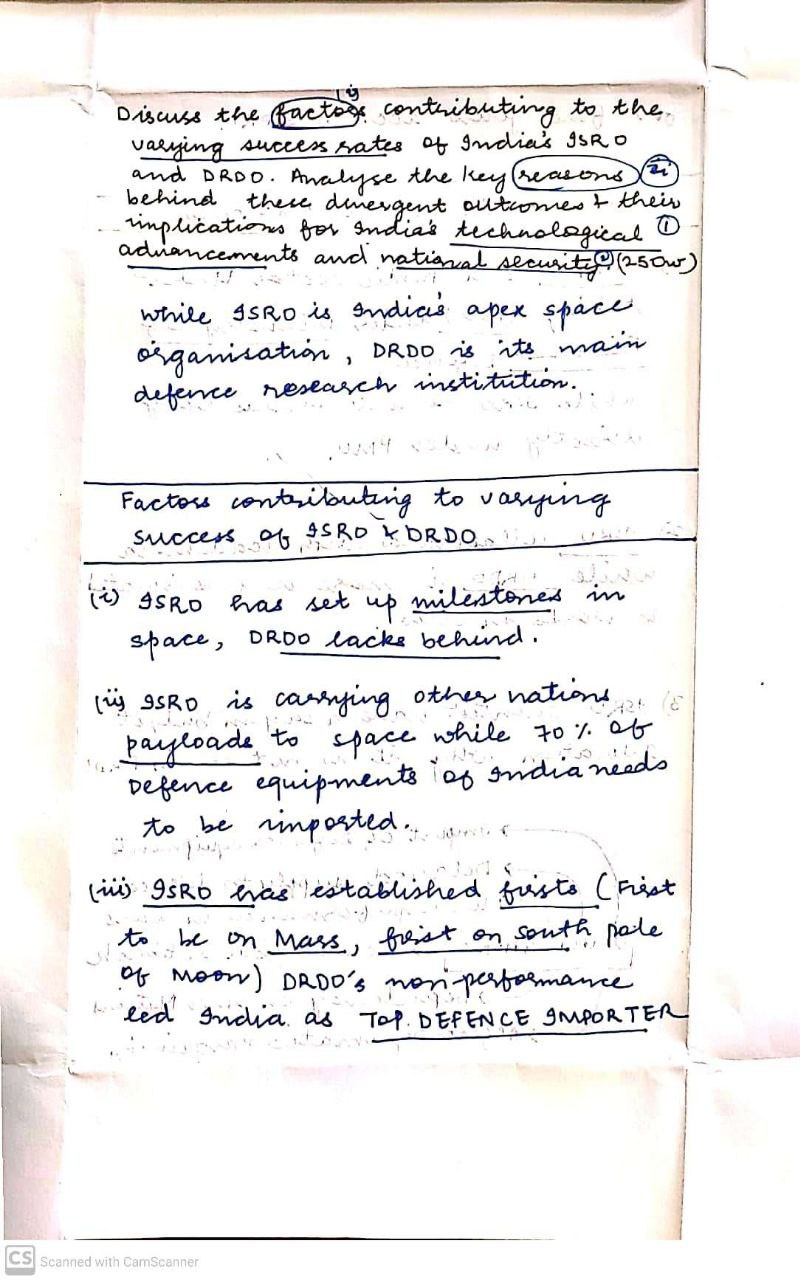 Discuss the factors contributing to the
varying success rates of India's ISRO
and DRDO. Analyse the key reasons
behind these divergent outcomes & their
implications for India's technological ①
advancements and national security ② (250w)
while ISRO is India's apex space
organisation, DRDO is its main
defence research institution.
Factors contributing to varying
success of ISRO & DRDO
(i) ISRO has set up milestones in
space, DRDO lacks behind.
(ii) ISRO is carrying other nations
payloads to space while 70% of
Defence equipments of India needs
to be imported.
(iii) ISRO has established firsts (First
to be on Mass, first on south pole
of Moon) DRDO's non-performance
led India as TOP DEFENCE IMPORTER
CS Scanned with CamScanner